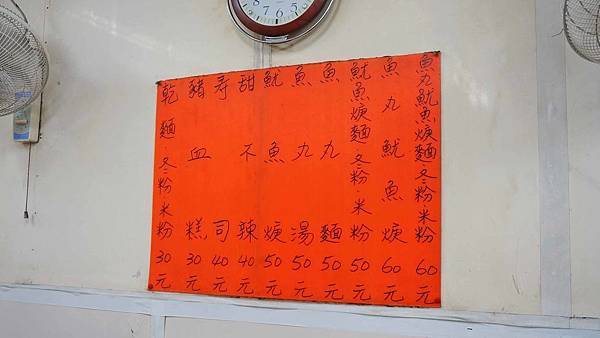 魚丸魷魚焿麵·冬粉·米粉60元
魚丸魷魚焿60元
魷魚焿麵·冬粉·米粉50元
魚丸麵50元
魚丸湯50元
魷魚焿50元
甜不辣40元
寿司40元
豬血糕30元
乾麵·冬粉·米粉30元